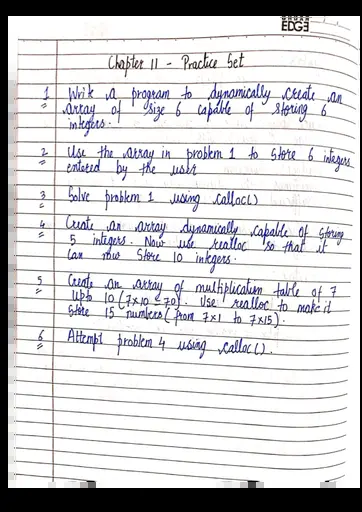 EDGE
Chapter 11 - Practice Set
1 Write a program to dynamically create an
array of size 6 capable of storing 6
integers.
2 Use the array in problem 1 to store 6 integers
entered by the user
3 Solve problem 1 using calloc()
4 Create an array dynamically capable of storing
5 integers. Now use realloc so that it
can now store 10 integers.
5 Create an array of multiplication table of 7
upto 10 (7x10 = 70). Use realloc to make it
store 15 numbers (from 7x1 to 7x15).
6 Attempt problem 4 using calloc().